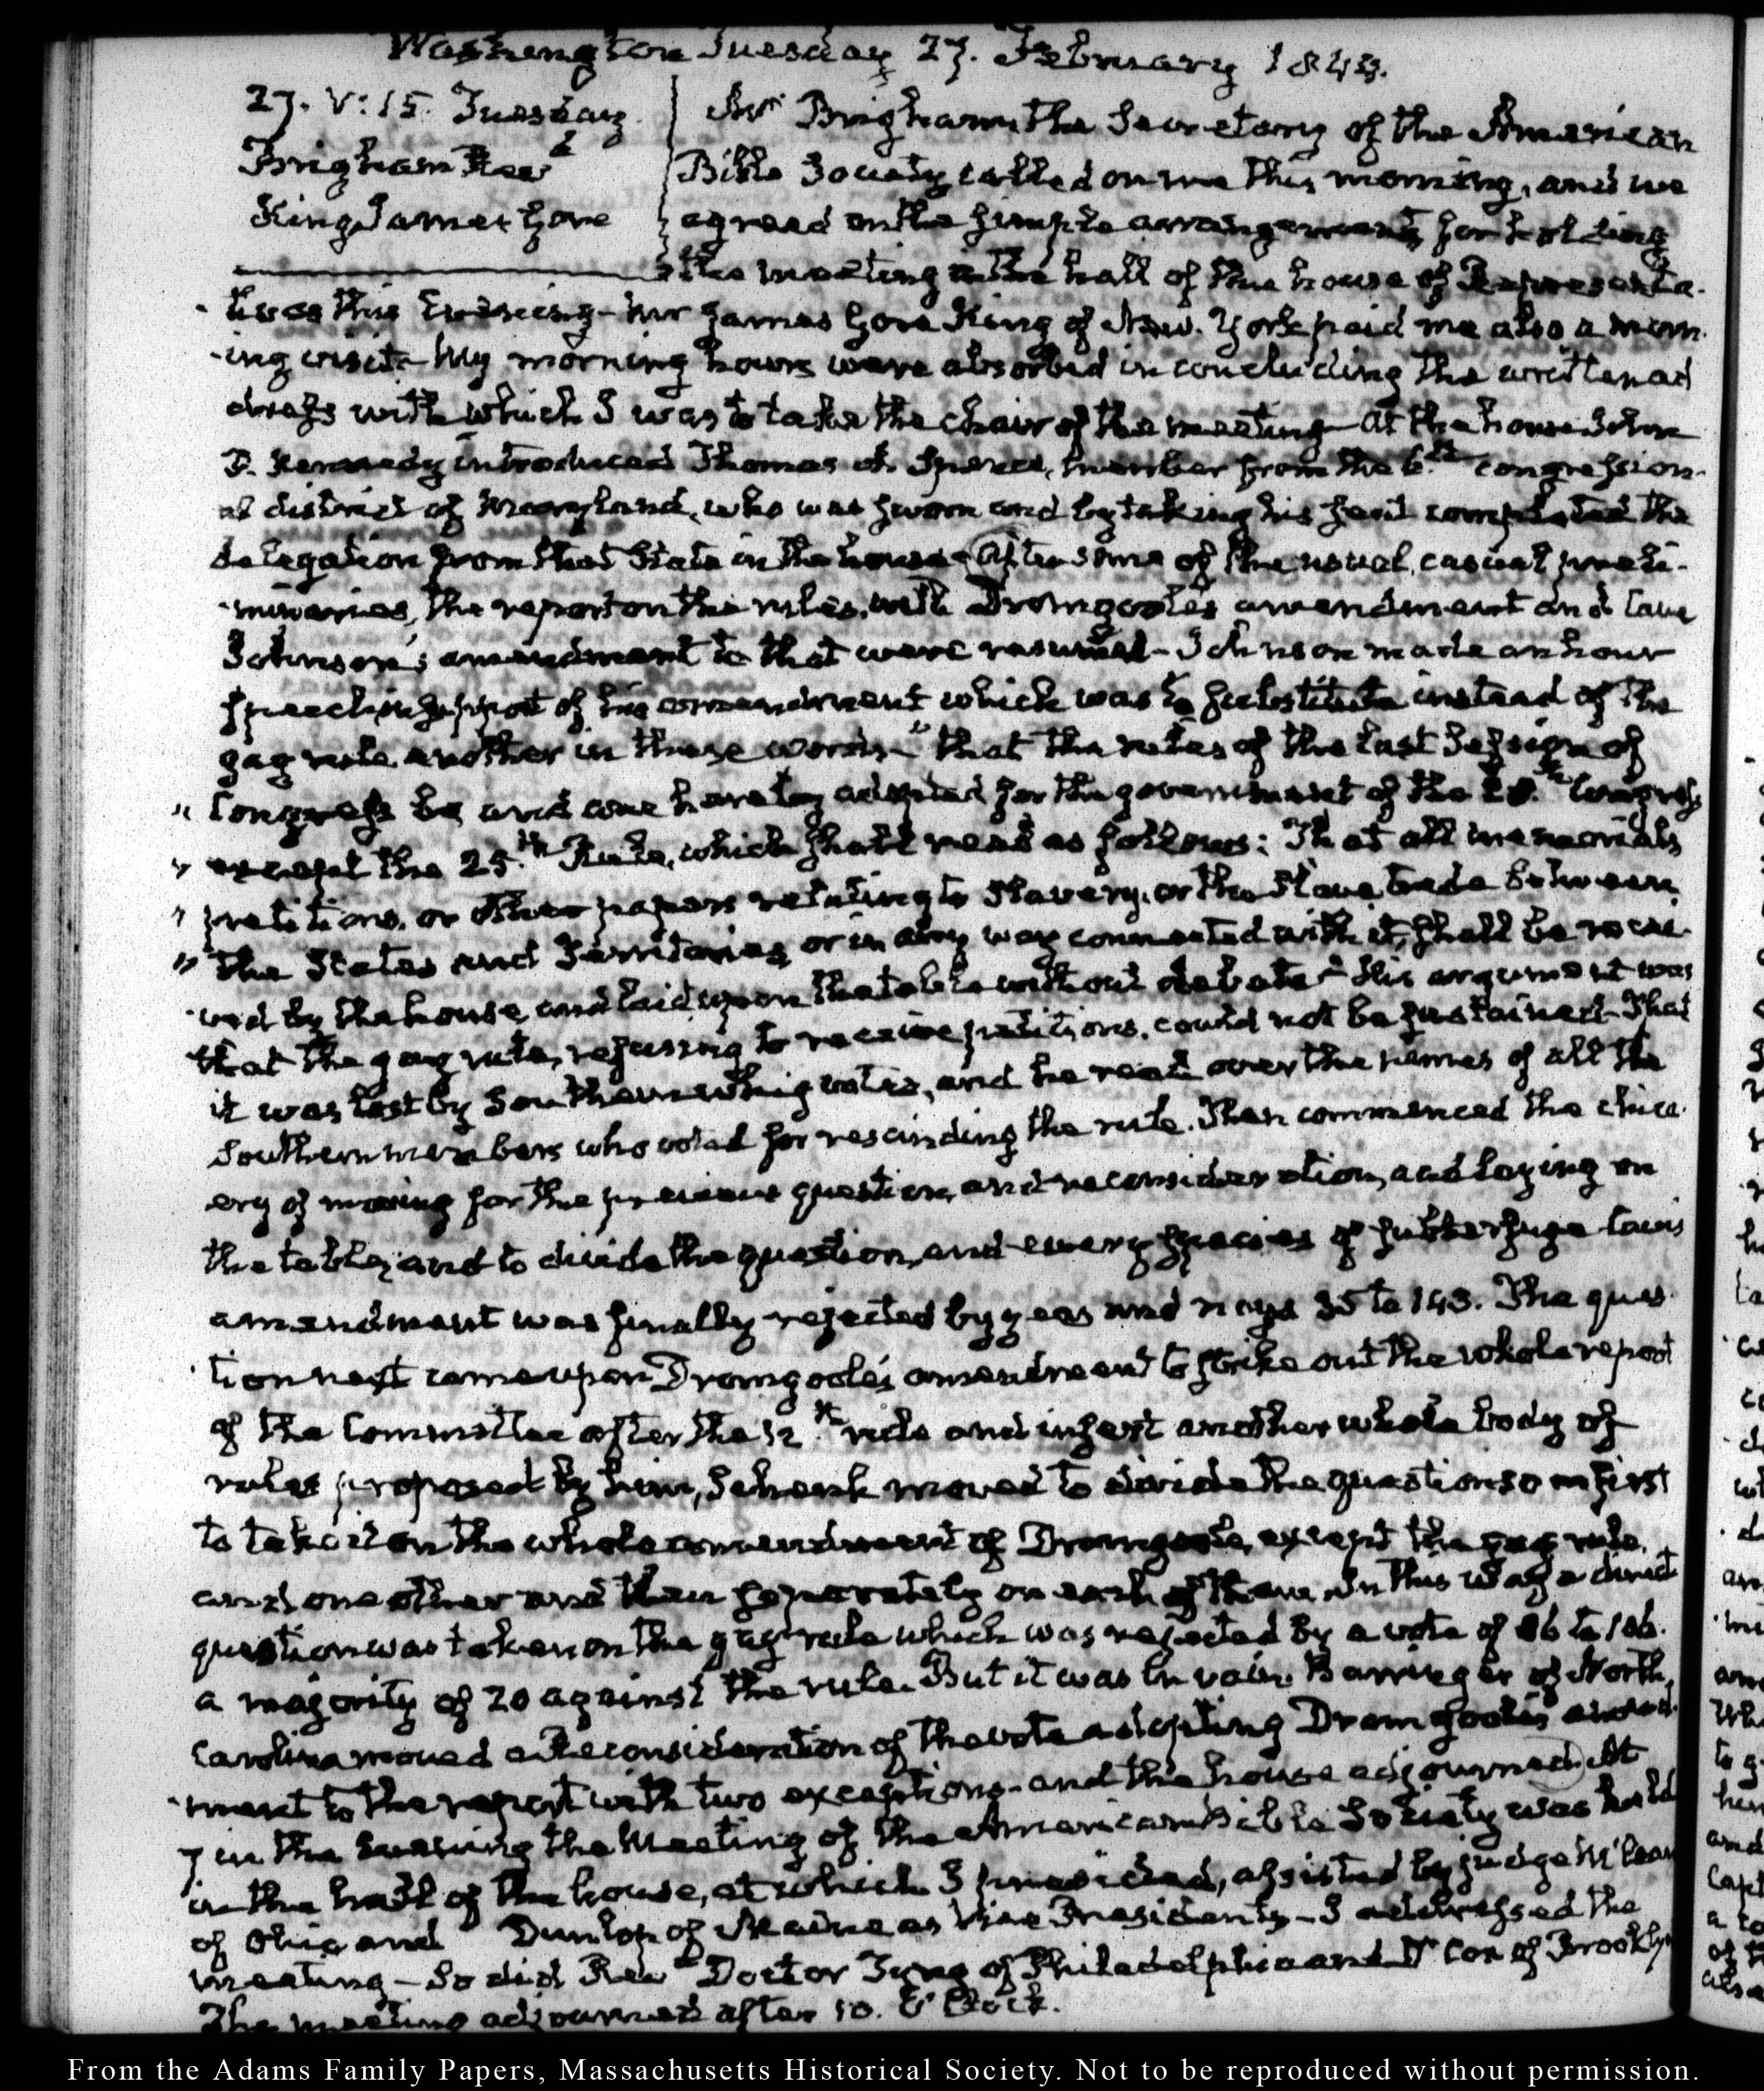 Washington Tuesday 27. February 1844.
27. V:15. Tuesday
Brigham Revd
King James Gore
Mr Brigham, the Secretary of the American
Bible Society called on me this morning, and we
agreed on the simple arrangement for holding
the meeting in the hall of the house of Representa-
tives this Evening – Mr James Gore King of New-York paid me also a morn-
-ing visit – My morning hours were absorbed in concluding the written ad
dress with which I was to take the chair of the meeting – At the house John
P. Kennedy introduced Thomas A. Spence, member from the 6.th congression-
al district of Maryland, who was sworn and by taking his seat completed the
delegation from that State in the house – After some of the usual, casual preli-
-minaries, the report on the rules, with Dromgoole's amendment and Cave
Johnson's amendment to that were resumed – Johnson made an hour
speech in support of his amendment which was to substitute instead of the
gag rule another in these words – "that the rules of the last Session of
" Congress be, and are hereby adopted for the government of the 28.th Congress
" except the 25.th Rule, which shall read as follows: That all memorials
" petitions, or other papers relating to Slavery, or the Slave trade between
" the States and Territories or in any way connected with it, shall be recei-
-ved by the house and laid upon the table without debate" – His argument was
that the gag rule, refusing to receive petitions, could not be sustained – That
it was lost by Southern whig votes, and he read over the names of all the
Southern members who voted for rescinding the rule. Then commenced the chica-
ery of moving for the previous question, and reconsideration, and laying on
the table, and to divide the question, and every species of subterfuge Cave's
amendment was finally rejected by yeas and nays 35 to 143. The ques-
-tion next came upon Dromgoole's amendment to strike out the whole report
of the Committee after the 12.th rule and insert another whole body of
rules proposed by him, Schenck moved to divide the question so as first
to take it on the whole amendment of Dromgoole, except the gag rule,
and one other and then separately on each of them. In this way a direct
question was taken on the gag rule which was rejected by a vote of 86 to 106.
a majority of 20 against the rule. But it was in vain. Barringer of North
Carolina moved a Reconsideration of the vote adopting Dromgoole's amend-
-ment to the report with two exceptions – and the house adjourned. At
7 in the Evening the Meeting of the American Bible Society was held
in the hall of the house, at which I presided, assisted by judge McLean
of Ohio and Dunlap of Maine as Vice Presidents – I addressed the
meeting – So did Revd Doctor Tyng of Philadelphia and Dr Cox of Brooklyn
The meeting adjourned after 10. O'Clock.
From the Adams Family Papers, Massachusetts Historical Society. Not to be reproduced without permission.